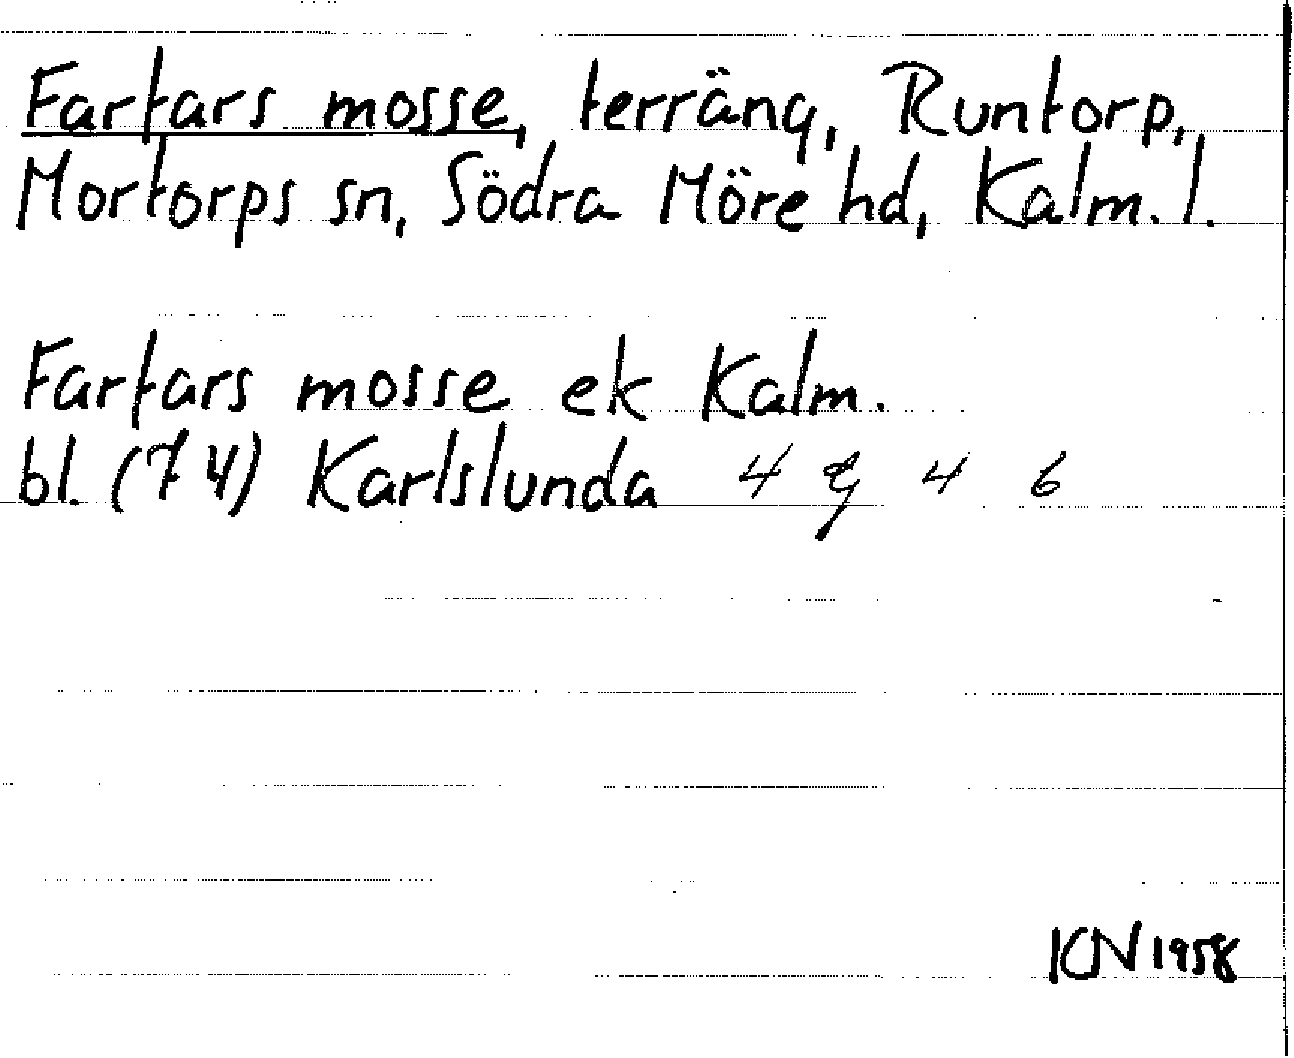 Farfars mosse, terräng, Runtorp,
Mortorps sn, Södra Möre hd, Kalm. l.
Farfars mosse ek Kalm.
bl. (74) Karlslunda 4 g 4 6
KN 1958